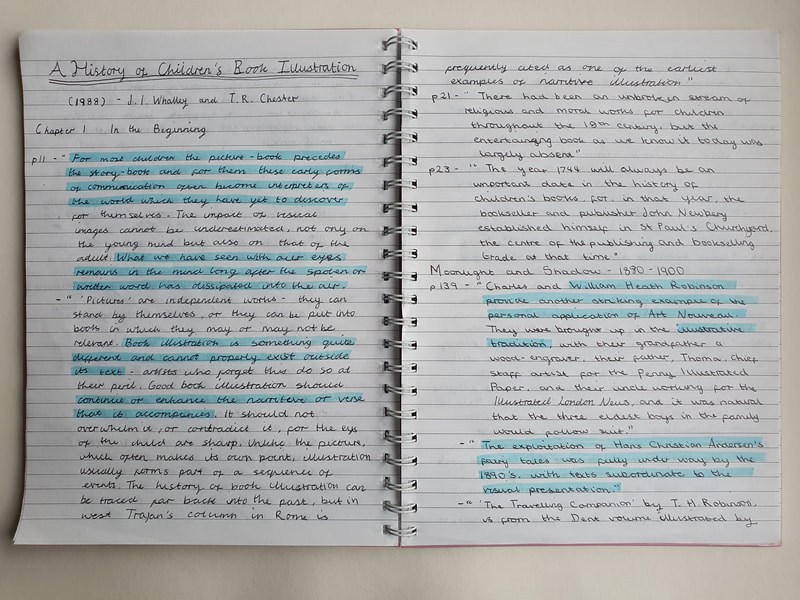 A History of Children's Book Illustration
(1988) - J.I. Whalley and T.R. Chester
Chapter 1 In the Beginning
p11 - "For most children the picture-book precedes
the story-book and for them these early forms
of communication often become interpreters of
the world which they have yet to discover
for themselves. The impact of visual
images cannot be underestimated, not only on
the young mind but also on that of the
adult. What we have seen with our eyes
remains in the mind long after the spoken or
written word has dissipated into the air.
- "'Pictures' are independent works - they can
stand by themselves, or they can be put into
books in which they may or may not be
relevant. Book illustration is something quite
different and cannot properly exist outside
its text - artists who forget this do so at
their peril. Good book illustration should
continue or enhance the narrative or verse
that it accompanies. It should not
overwhelm it, or contradict it, for the eyes
of the child are sharp. Unlike the picture,
which often makes its own point, illustration
usually forms part of a sequence of
events. The history of book illustration can
be traced far back into the past, but in
west Trajan's column in Rome is
frequently cited as one of the earliest
examples of narritive illustration"
p21 - "There had been an unbroken stream of
religious and moral works for children
throughout the 18th century, but the
entertaining book as we know it today was
largely absent"
p23 - "The year 1744 will always be an
important date in the history of
children's books, for, in that year, the
bookseller and publisher John Newbery
established himself in St Paul's Churchyard,
the centre of the publishing and bookselling
trade at that time"
Moonlight and Shadow - 1890 - 1900
p139 - "Charles and William Heath Robinson
provide another striking example of the
personal application of Art Nouveau.
They were brought up in the illustrative
tradition, with their grandfather a
wood-engraver, their father, Thomas, Chief
staff artist for the Penny Illustrated
Paper, and their uncle working for the
Illustrated London News, and it was natural
that the three eldest boys in the family
would follow suit."
- "The exploitation of Hans Christian Andersen's
fairy tales was fully under way by the
1890's, with texts subordinate to the
visual presentation."
- "'The Travelling Companion' by T. H. Robinson,
is from the Dent volume illustrated by